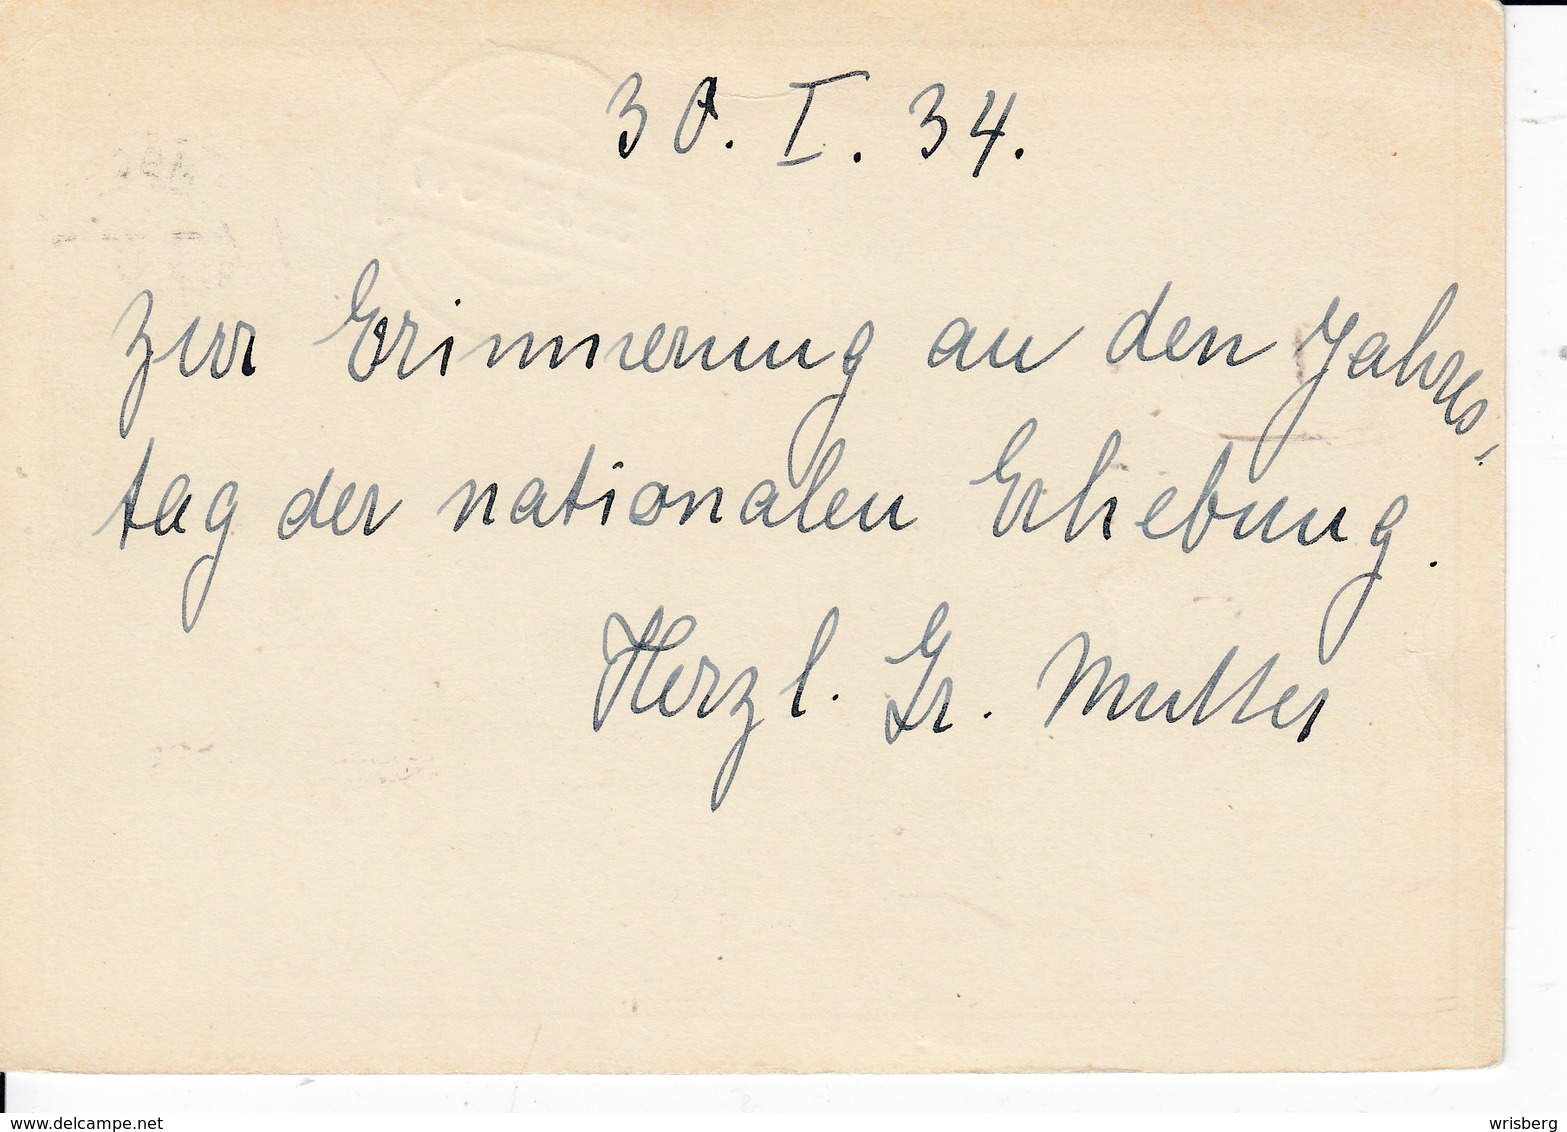 30. I. 34.
zur Erinnerung an den Jahres-
tag der nationalen Erhebung.
Herzl. Gr. Mutter
www.delcampe.net
wrisberg